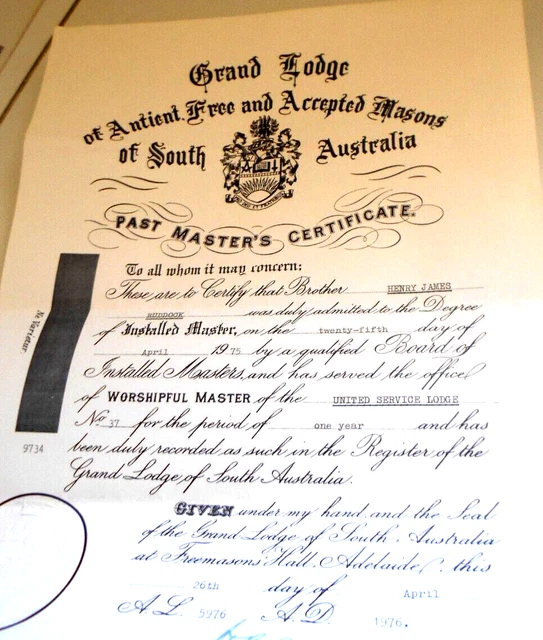 Grand Lodge
of Antient, Free and Accepted Masons
of South Australia
PAST MASTER'S CERTIFICATE.
To all whom it may concern:
These are to Certify that Brother HENRY JAMES
RUDDOCK was duly admitted to the Degree
of Installed Master, on the twenty-fifth day of
April 1975 by a qualified Board of
Installed Masters, and has served the office
of WORSHIPFUL MASTER of the UNITED SERVICE LODGE
No 37 for the period of one year and has
been duly recorded as such in the Register of the
Grand Lodge of South Australia.
GIVEN under my hand and the Seal
of the Grand Lodge of South Australia
at Freemasons' Hall, Adelaide, this
26th day of April
A.L. 5976 A.D. 1976.
Ne Varietur
9734